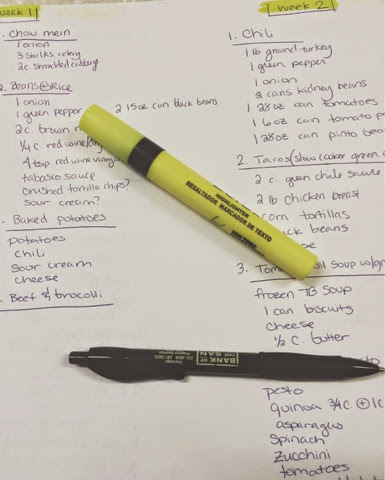 week 1
. Chow mein
1 onion
3 stalks celery
2c shredded cabbage
2. Beans & Rice
1 onion
1 green pepper
2 15oz can black beans
2c. brown
1/4 c. red wine/
4 tsp. red wine vinega
tabasco sauce
crushed tortilla chips?
sour cream?
. Baked potatoes
potatoes
chili
sour cream
cheese
. Beef & brocolli
week 2
1. Chili
1 lb ground turkey
1 green pepper
1 onion
2 cans kidney beans
1 28oz can tomatoes
1 6oz can tomato p
1 28oz can pinto bea
2. Tacos (slow cooker green c
2 c. green chile sauce
2 lb chicken breast
corn tortillas
ck beans
se
3. Tom il Soup w/gr
frozen TB soup
1 can biscuits
cheese
1/2 c. butter
pesto
quinoa 3/4 c. + 1c
asparagus
spinach
zucchini
tomatoes
HIGHLIGHTER
RESALTADOR MARCADOR DE TEXTO
BANK OF
THE SAN